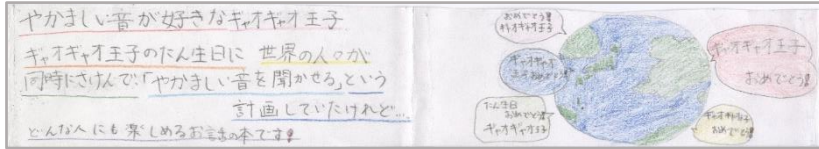 やかましい音が好きなギャオギャオ王子
ギャオギャオ王子のたん生日に 世界の人々が
同時にさけんで、「やかましい音を聞かせる」という
計画していたけれど…
どんな人にも楽しめるお話の本です!
おめでとう!
ギャオギャオ王子
ギャオギャオ
おめでとう!
たん生日
おめでとう!
ギャオギャオ王子
ギャオギャオ王子
おめでとう!
ギャオギャオ王子
おめでとう!